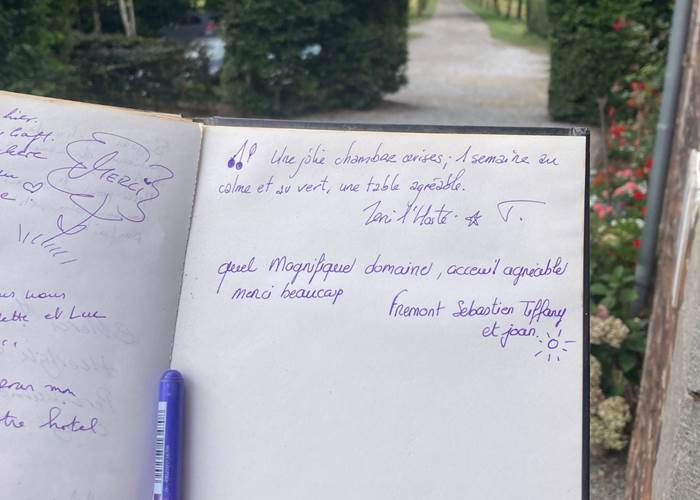 hier.
MERCI
nous
et Luc
mon
hotel
Une jolie chambre cerises, 1 semaine au
calme et au vert, une table agréable.
T.
quel Magnifique domaine, acceuil agréable
merci beaucoup
Fremont Sebastien Tiffany
et joan.